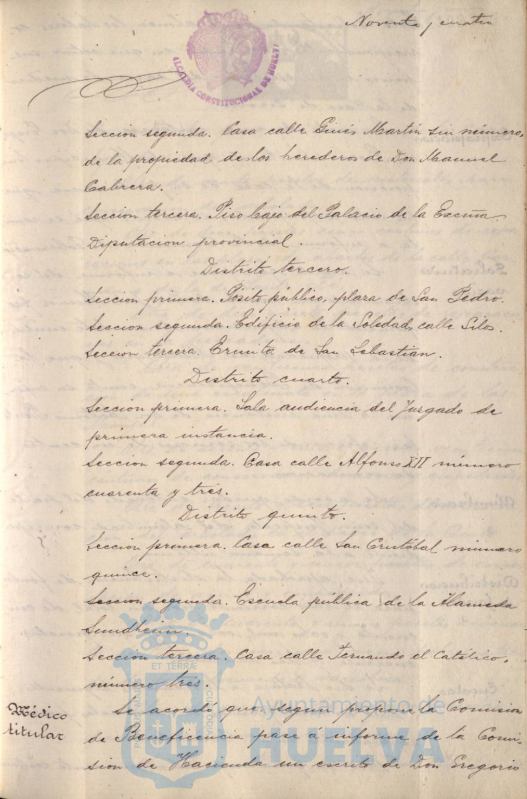 Noventa y cuatro
ALCALDIA CONSTITUCIONAL DE HUELVA
Seccion segunda. Casa calle Ginés Martin sin número,
de la propiedad de los herederos de Don Manuel
Cabrera.
Seccion tercera. Piso bajo del Palacio de la Excma
Diputacion provincial.
Distrito tercero.
Seccion primera. Pósito público, plaza de San Pedro.
Seccion segunda. Edificio de la Soledad, calle Silos.
Seccion tercera. Ermita de San Sebastian.
Distrito cuarto.
Seccion primera. Sala audiencia del Juzgado de
primera instancia.
Seccion segunda. Casa calle Alfonso XII número
cuarenta y tres.
Distrito quinto.
Seccion primera. Casa calle San Cristóbal número
quince.
Seccion segunda. Escuela pública de la Alameda
Sundheim
Seccion tercera. Casa calle Fernando el Católico,
número tres.
Médico
titular
Se acordó que, segun propone la Comision
de Beneficencia pase á informe de la Comi-
sion de Hacienda un escrito de Don Gregorio
ET TERRÆ
Ayuntamiento de
HUELVA